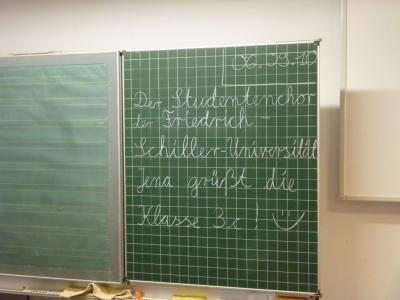 06.29.10
Der Studentenchor
der Friedrich-
Schiller-Universität
Jena grüßt die
Klasse 3c!